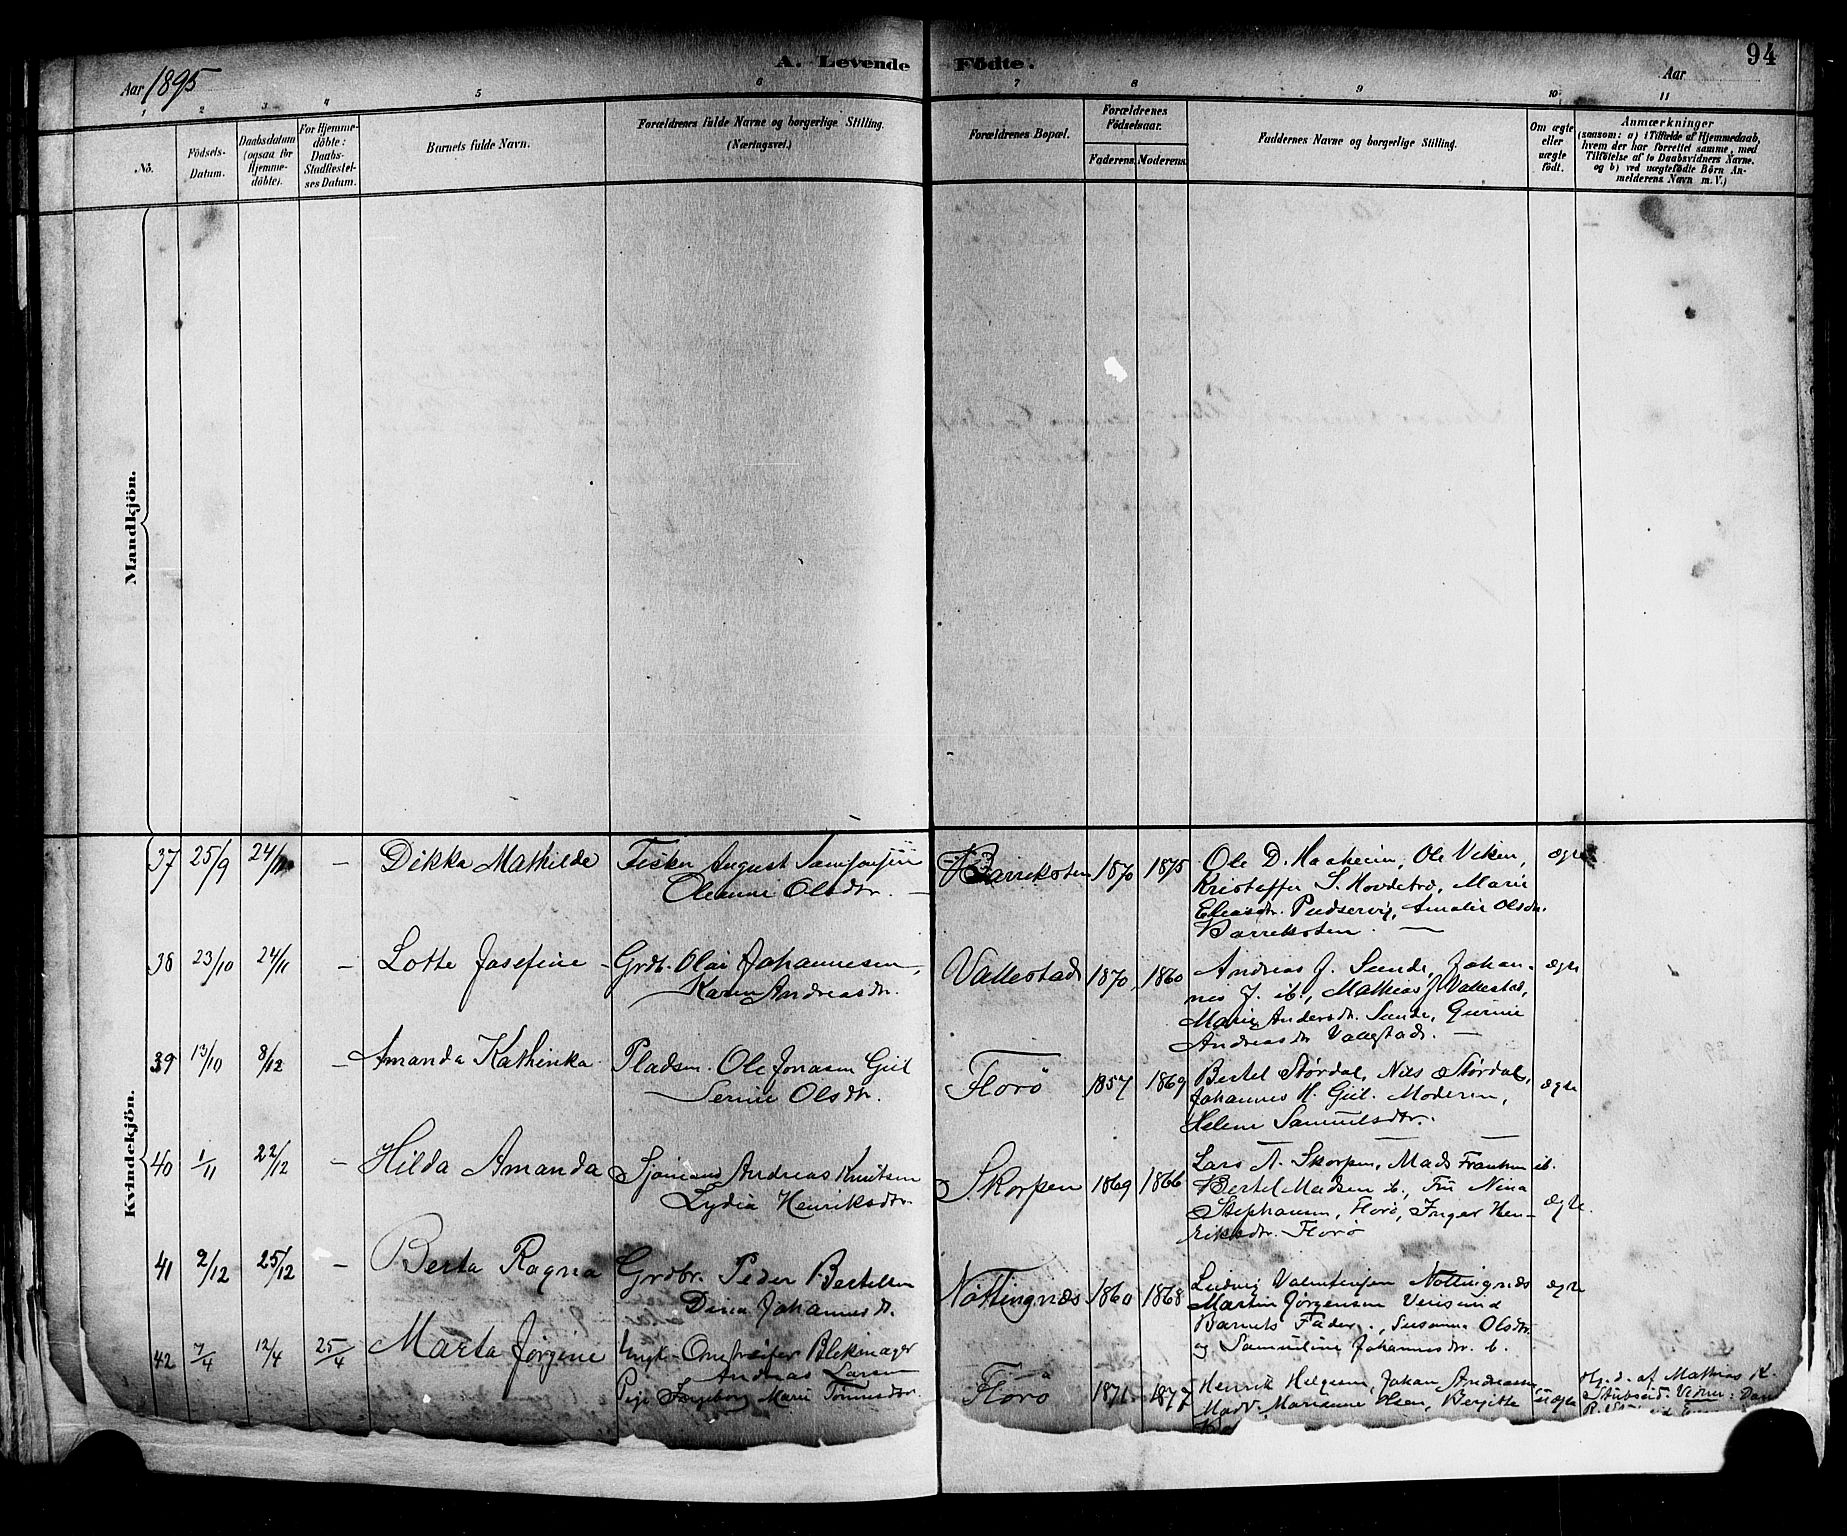 94
A. Levende Födte.
Aar 1895
Aar
1 2 3 4 5 6 7 8 9 10 11
No.
Födsels-Datum.
Daabsdatum (ogsaa for Hjemmedöbte).
For Hjemmedöbte: Daabs-Stadfæstelses Datum.
Barnets fulde Navn.
Forældrenes fulde Navne og borgerlige Stilling. (Næringsvei.)
Forældrenes Bopæl.
Forældrenes Födselsaar.
Faderens. Moderens.
Faddernes Navne og borgerlige Stilling.
Om ægte eller uægte födt.
Anmærkninger
(saasom: a) i Tilfælde af Hjemmedaab,
hvem der har forrettet samme, med
Tilföielse af to Daabsvidners Navne.
og b) ved uægtefödte Börn An-
melderens Navn m. V.)
Mandkjön.
Kvindekjön.
37 25/9 24/11 - Dikka Mathilde Fisker August
Oleanne Olsdtr. Barreksten 1870 1875 Ole D. Haaheim, Ole Viken, ægte
Kristoffer S. Hovdetræ, Marie
Eliasdtr. Amalie Olsdtr.
Barreksten. —
38 23/10 24/11 - Lotte Josefine Grdbr. Olai Johannesen,
Karen Andreasdtr. Vallestad 1870 1860 Andreas J. Sunde, Johan- ægte
nes J. ib., Mathias J. Vallestad,
Marie Andersdtr. Sunde, Gurine
Andreasdtr Vallestad. —
39 13/10 8/12 - Amanda Kathinka Pladsm. Ole Jonasen Gjil
Serine Olsdtr. Florö 1857 1869 Bertel Stördal, Nils Stördal, ægte
Johannes H. Gjil. Moderen,
Helene Samuelsdtr. —
40 1/11 22/12 - Hilda Amanda Sjömand Andreas Knutsen
Lydia Henriksdtr. Skorpen 1869 1866 Lars A. Skorpen, Mads Frantsen ib.
Bertel Madsen ib., Fru Nina ægte.
Stephansen, Florö, Inger Hen-
riksdtr. Florö
41 2/12 25/12 - Berta Ragna Grdbr. Peder Bertelsen
Dina Johannesdt. Nöttingnæs 1860 1868 Ludvig Valentinsen Nöttingnæs ægte
Martin Jörgensen
Barnets Fader., Susanne Olsdtr
og Samueline Johannesdtr. ib.
42 7/4 12/4 25/4 Marta Jörgine Ungk. Blikmager
Andreas Larsen
Pige Ingeborg Marie Tönnesdtr. Florö 1871 1877 Henrik Helgesen, Johan Andreassen uægte Hj. d. af Mathias K.
Madv. Marianne Olsen, Bergitte